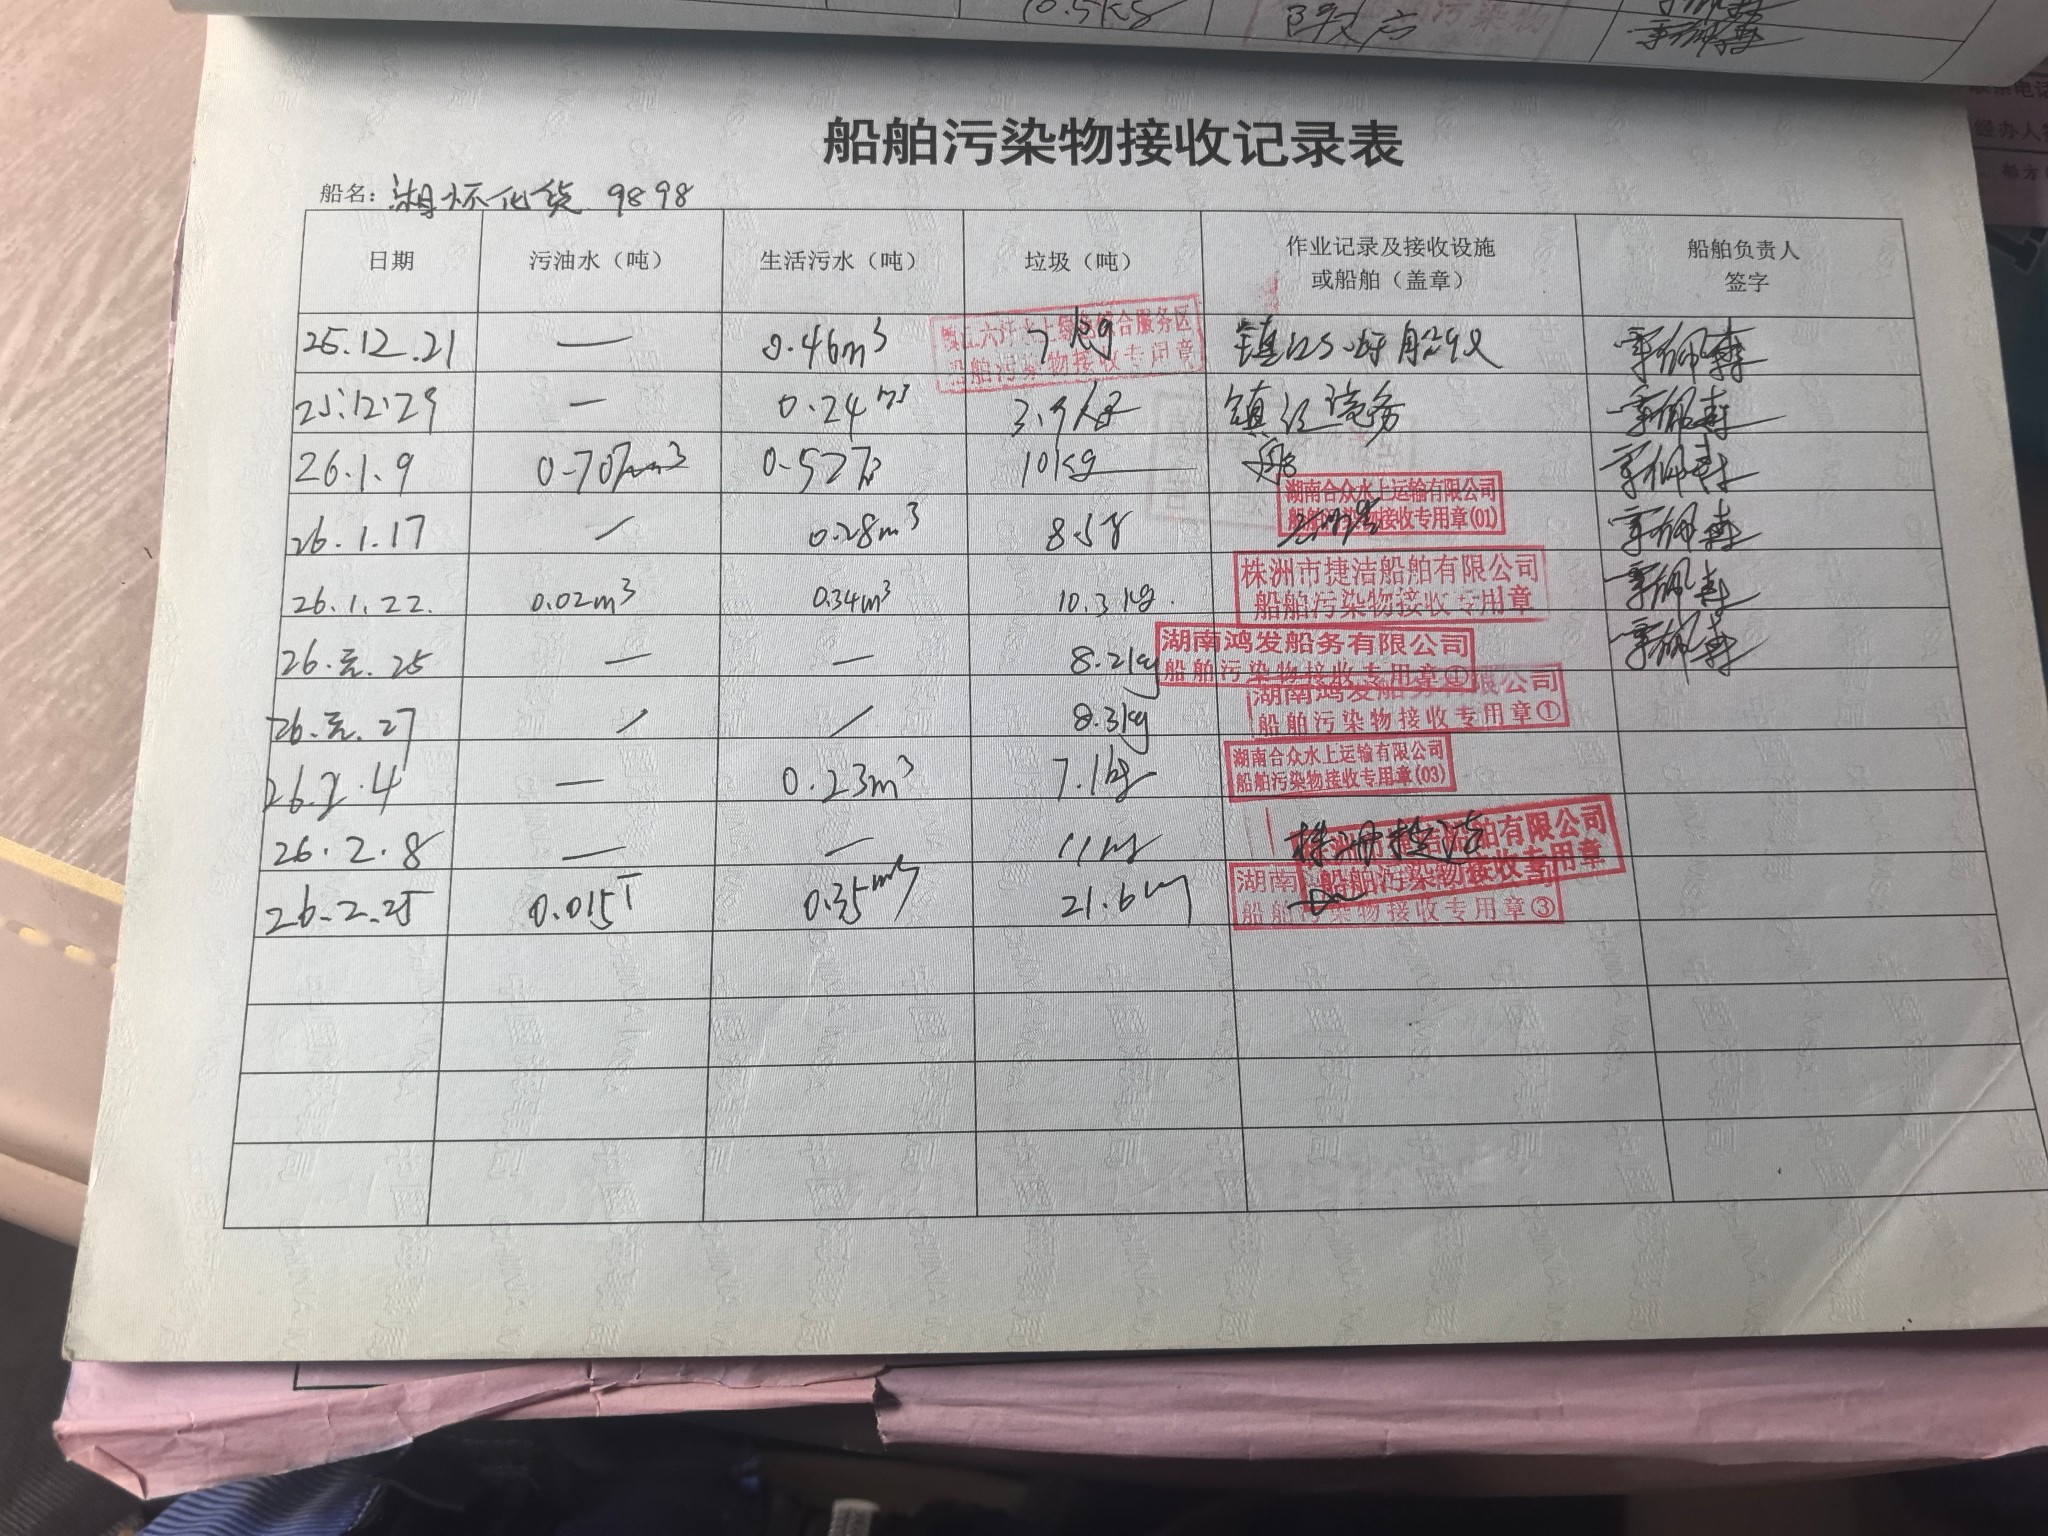 10.5kg
船舶污染物接收记录表
船名：湖怀化货 9898
日期 污油水（吨） 生活污水（吨） 垃圾（吨） 作业记录及接收设施或船舶（盖章） 船舶负责人签字
25.12.21 — 0.46m³ 7kg 镇江六圩船
综合服务区
船舶污染物接收专用章
25.12.29 — 0.24m³ 3.9kg 镇江港务
26.1.9 0.707m³ 0.527 10kg
26.1.17 / 0.28m³ 8.5
湖南合众水上运输有限公司
船舶污染物接收专用章(01)
26.1.22. 0.02m³ 0.34m³ 10.3kg.
株洲市捷洁船舶有限公司
船舶污染物接收专用章
26.元.25 — — 8.2kg
湖南鸿发船务有限公司
船舶污染物接收专用章①
26.元.27 / / 8.3kg
湖南鸿发船务有限公司
船舶污染物接收专用章①
26.2.4 — 0.23m³ 7.1kg
湖南合众水上运输有限公司
船舶污染物接收专用章(03)
26.2.8 — — 11kg 株洲捷洁
船舶有限公司
船舶污染物接收专用章
26.2.25 0.015T 0.35m³ 21.6kg
湖南
船舶污染物接收专用章③